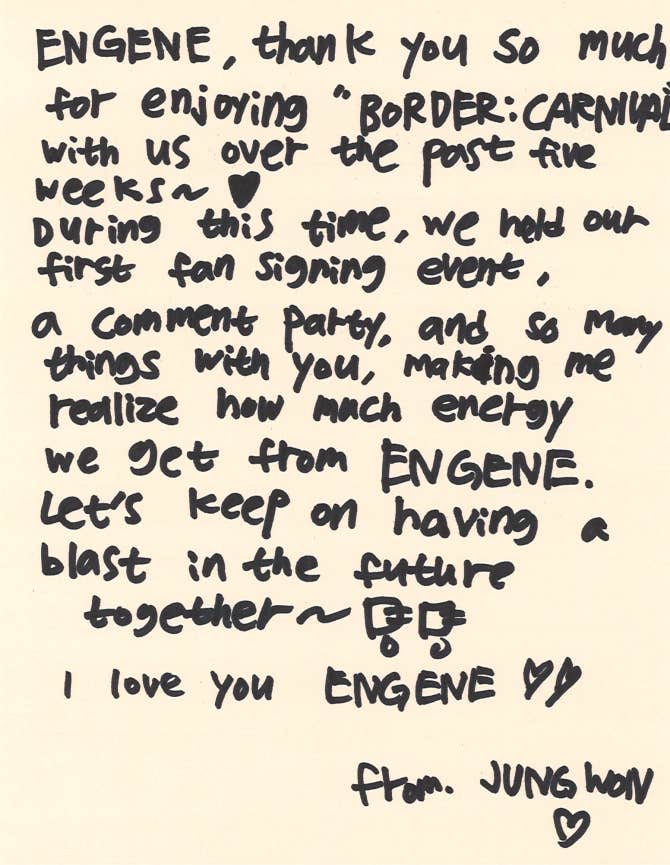 ENGENE, thank you so much
for enjoying "BORDER: CARNIVAL
with us over the past five
weeks~ ♥
During this time, we held our
first fan signing event,
a comment party, and so many
things with you, making me
realize how much energy
we get from ENGENE.
Let's keep on having a
blast in the future
together~ 덩덩
I love you ENGENE ♡♡
from. JUNGWON
♡